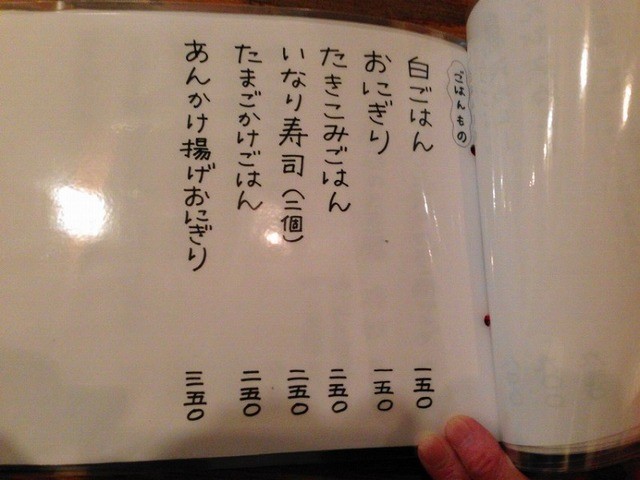 ごはんもの
白ごはん 一五〇
おにぎり 一五〇
たきこみごはん 二五〇
いなり寿司(二個) 二五〇
たまごかけごはん 二五〇
あんかけ揚げおにぎり 三五〇